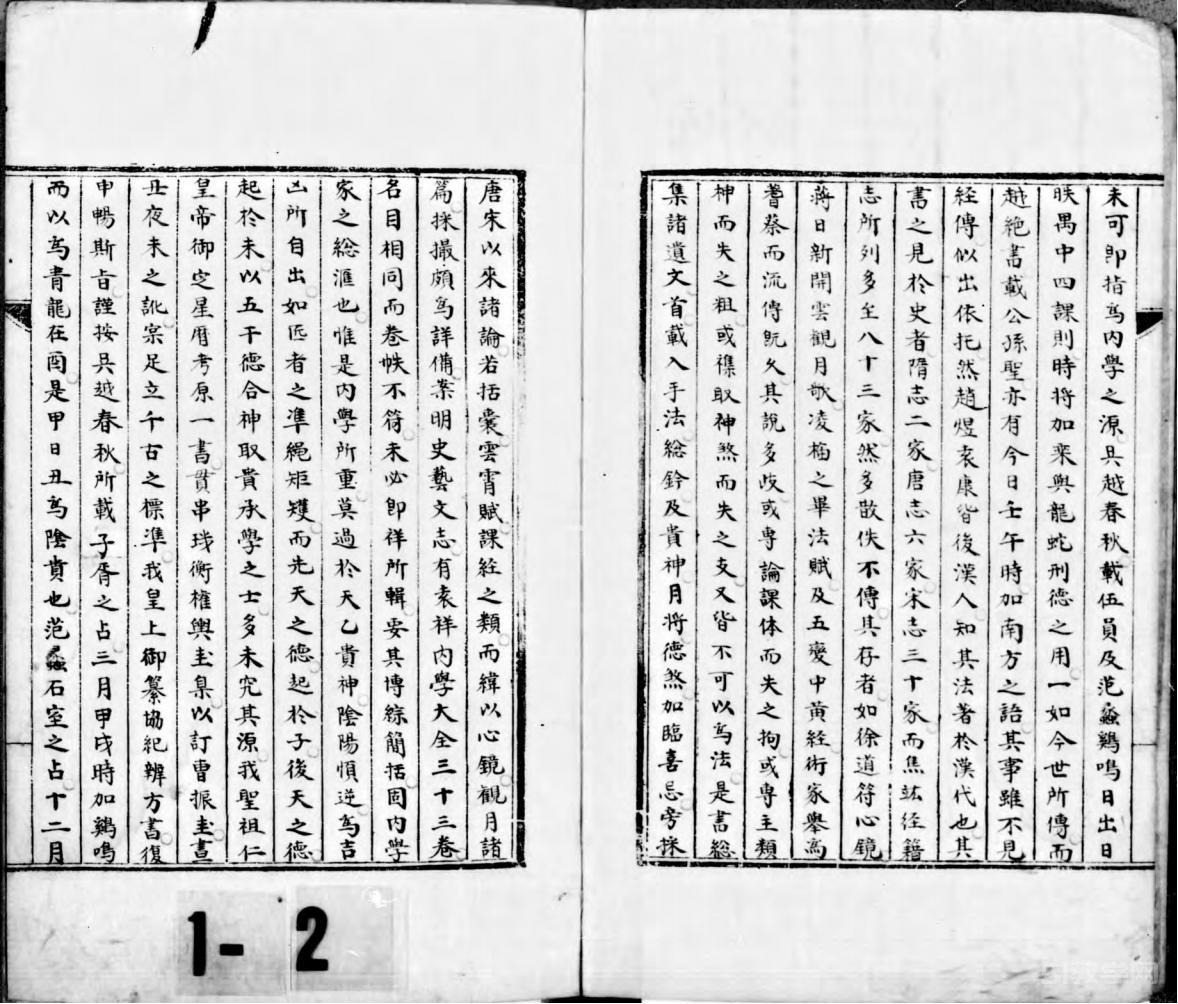 未可即指為內學之源吳越春秋載伍員及范蠡鷄鳴日出日
昳禺中四課則時將加乘與龍蛇刑德之用一如今世所傳而
越絶書載公孫聖亦有今日壬午時加南方之語其事雖不見
經傳似出依托然趙煜袁康皆後漢人知其法著於漢代也其
書之見於史者隋志二家唐志六家宋志三十家而焦竑經籍
志所列多至八十三家然多散佚不傳其存者如徐道符心鏡
蔣日新開雲觀月歌凌福之畢法賦及五變中黃經術家舉為
蓍蔡而流傳既久其說多歧或専論課体而失之拘或専主類
神而失之粗或襍取神煞而失之支又皆不可以為法是書総
集諸遺文首載入手法総鈐及貴神月將德煞加臨喜忌旁採
唐宋以來諸論若括囊雲霄賦課経之類而緯以心鏡觀月諸
篇採撮頗為詳備案明史藝文志有袁祥內學大全三十三卷
名目相同而卷帙不符未必即祥所輯要其博綜簡括固內學
家之総滙也惟是內學所重莫過於天乙貴神陰陽順逆為吉
凶所自出如匠者之凖繩矩矱而先天之德起於子後天之德
起於未以五干德合神取貴承學之士多未究其源我聖祖仁
皇帝御定星厯考原一書貫串璣衡權輿圭臬以訂曹振圭晝
丑夜未之訛宲足立千古之標準我皇上御纂協紀辨方書復
申暢斯旨謹按吳越春秋所載子胥之占三月甲戌時加鷄鳴
而以為青龍在酉是甲日丑為陰貴也范蠡石室之占十二月
1-2